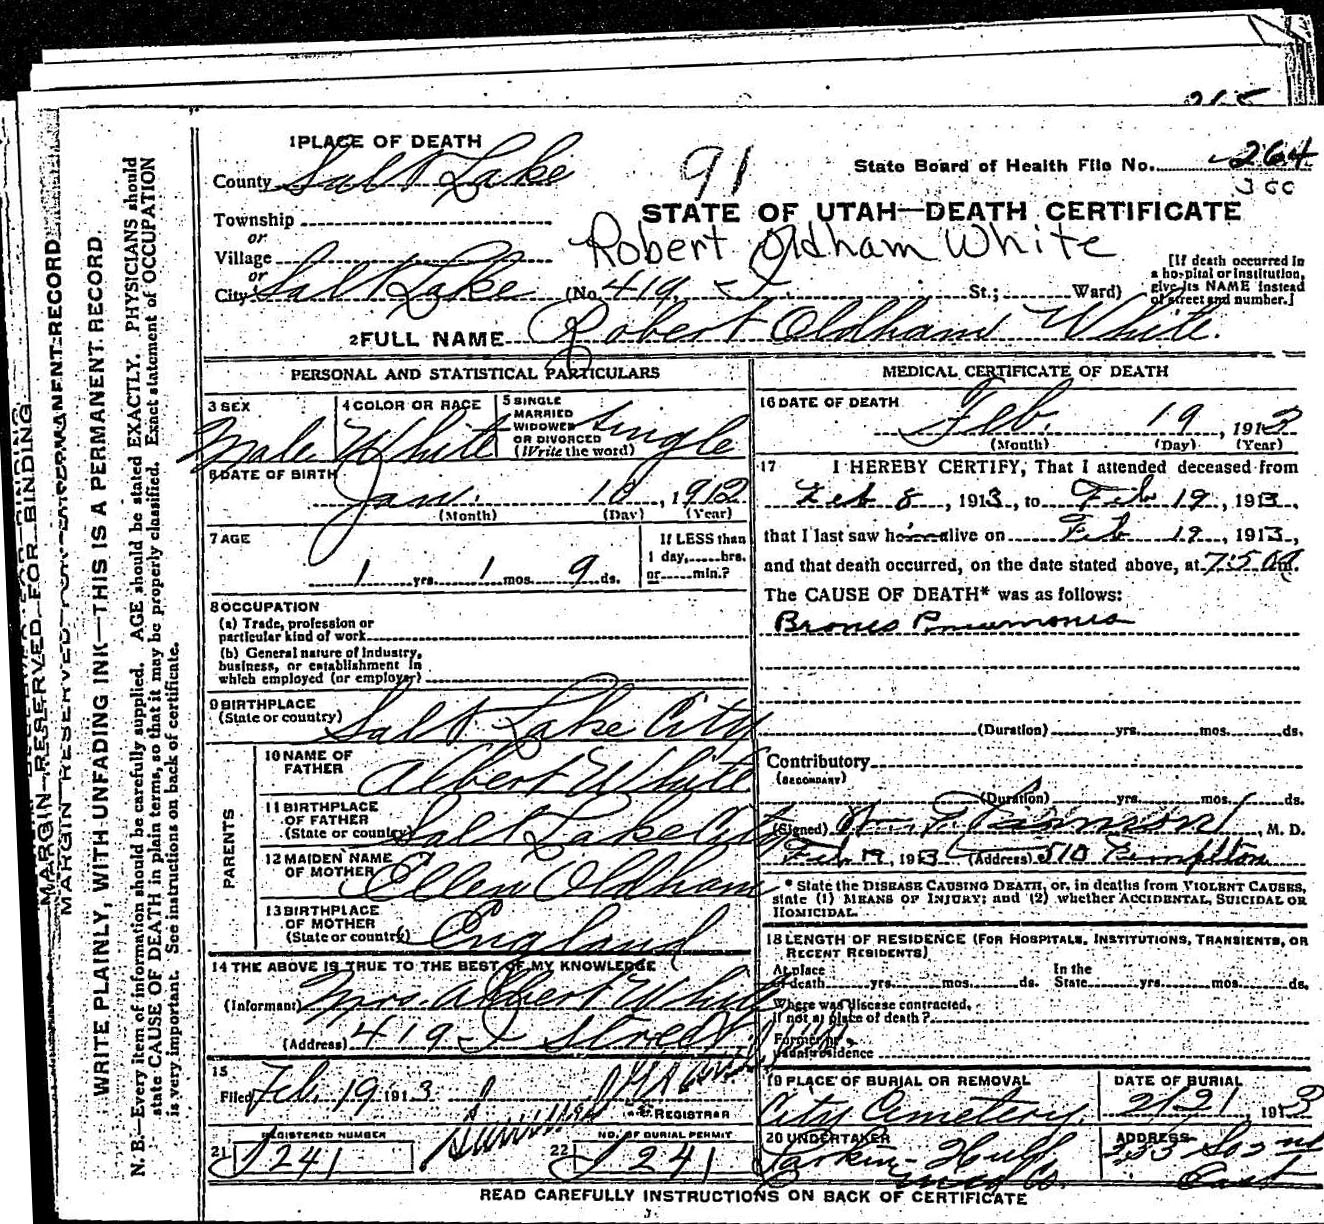 265
1 PLACE OF DEATH
91
State Board of Health File No. 264
300
County Salt Lake
STATE OF UTAH—DEATH CERTIFICATE
Township
or
Robert Oldham White
Village
or
City Salt Lake (No. 419 I St.; Ward)
[If death occurred in
a hospital or institution,
give its NAME instead
of street and number.]
2 FULL NAME Robert Oldham White.
PERSONAL AND STATISTICAL PARTICULARS
3 SEX
Male
4 COLOR OR RACE
White
5 SINGLE
MARRIED
WIDOWED
OR DIVORCED
(Write the word)
Single
6 DATE OF BIRTH
Jan. 10, 1912
(Month) (Day) (Year)
7 AGE
1 yrs. 1 mos. 9 ds.
If LESS than
1 day, hrs.
or min.?
8 OCCUPATION
(a) Trade, profession or
particular kind of work
(b) General nature of Industry,
business, or establishment in
which employed (or employer)
9 BIRTHPLACE
(State or country) Salt Lake City
PARENTS
10 NAME OF
FATHER Albert White
11 BIRTHPLACE
OF FATHER
(State or country) Salt Lake City
12 MAIDEN NAME
OF MOTHER Ellen Oldham
13 BIRTHPLACE
OF MOTHER
(State or country) England
14 THE ABOVE IS TRUE TO THE BEST OF MY KNOWLEDGE
(Informant) Mrs. Albert White
(Address) 419 I Street
15
Filed Feb. 19 1913
REGISTRAR
REGISTERED NUMBER
21 J 241
NO. OF BURIAL PERMIT
22 J 241
MEDICAL CERTIFICATE OF DEATH
16 DATE OF DEATH
Feb. 19, 1913
(Month) (Day) (Year)
17 I HEREBY CERTIFY, That I attended deceased from
Feb 8, 1913, to Feb 19, 1913,
that I last saw him alive on Feb 19, 1913,
and that death occurred, on the date stated above, at
The CAUSE OF DEATH* was as follows:
(Duration) yrs. mos. ds.
Contributory
(SECONDARY)
(Duration) yrs. mos. ds.
(Signed) M. D.
Feb 19, 1913 (Address) 510 Templton
* State the DISEASE CAUSING DEATH, or, in deaths from VIOLENT CAUSES,
state (1) MEANS OF INJURY; and (2) whether ACCIDENTAL, SUICIDAL OR
HOMICIDAL.
18 LENGTH OF RESIDENCE (FOR HOSPITALS, INSTITUTIONS, TRANSIENTS, OR
RECENT RESIDENTS)
At place
of death yrs. mos. ds.
In the
State yrs. mos. ds.
Where was disease contracted,
if not at place of death?
Former or
usual residence
19 PLACE OF BURIAL OR REMOVAL
City Cemetery.
DATE OF BURIAL
2/21, 1913
20 UNDERTAKER
ADDRESS
East
READ CAREFULLY INSTRUCTIONS ON BACK OF CERTIFICATE
MARGIN RESERVED FOR BINDING
WRITE PLAINLY, WITH UNFADING INK—THIS IS A PERMANENT RECORD
N. B.—Every item of information should be carefully supplied. AGE should be stated EXACTLY. PHYSICIANS should
state CAUSE OF DEATH in plain terms, so that it may be properly classified. Exact statement of OCCUPATION
is very important. See instructions on back of certificate.